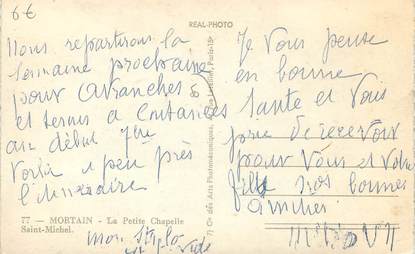 6€
REAL-PHOTO
Nous repartirons la
semaine prochaine
pour Avranches
et serons à Coutances
au début 7bre
voilà à peu près
l'itinéraire
77 — MORTAIN - La Petite Chapelle
Saint-Michel.
mon Stylo
est vide
Je vous pense
en bonne
santé et vous
prie de recevoir
pour vous et votre
fille nos bonnes
amitiés